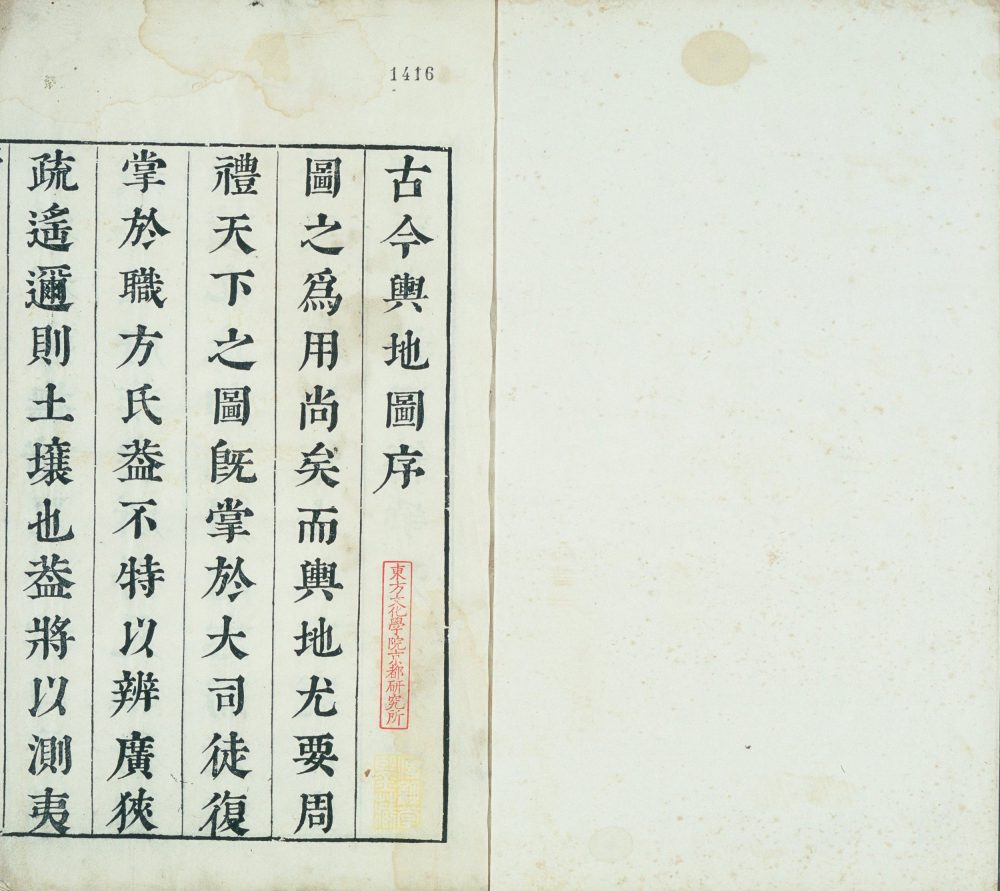 1416
古今輿地圖序
東方文化學院京都研究所
圖之爲用尚矣而輿地尤要周
禮天下之圖旣掌於大司徒復
掌於職方氏葢不特以辨廣狹
疏遙邇則土壤也葢將以測夷